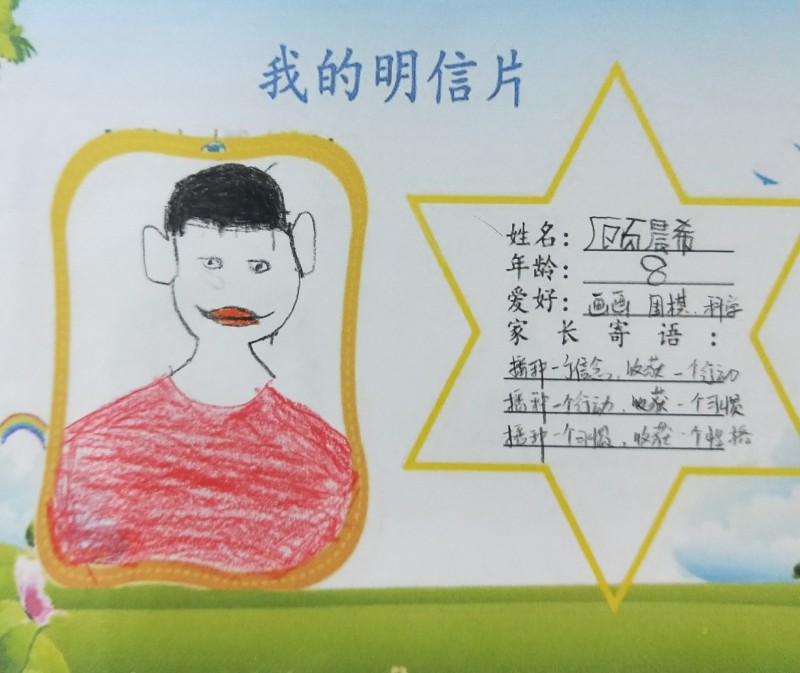 我的明信片
姓名：顾晨希
年龄：8
爱好：画画 围棋、科学
家长寄语：
播种一个信念，收获一个行动
播种一个行动，收获一个习惯
播种一个习惯，收获一个性格